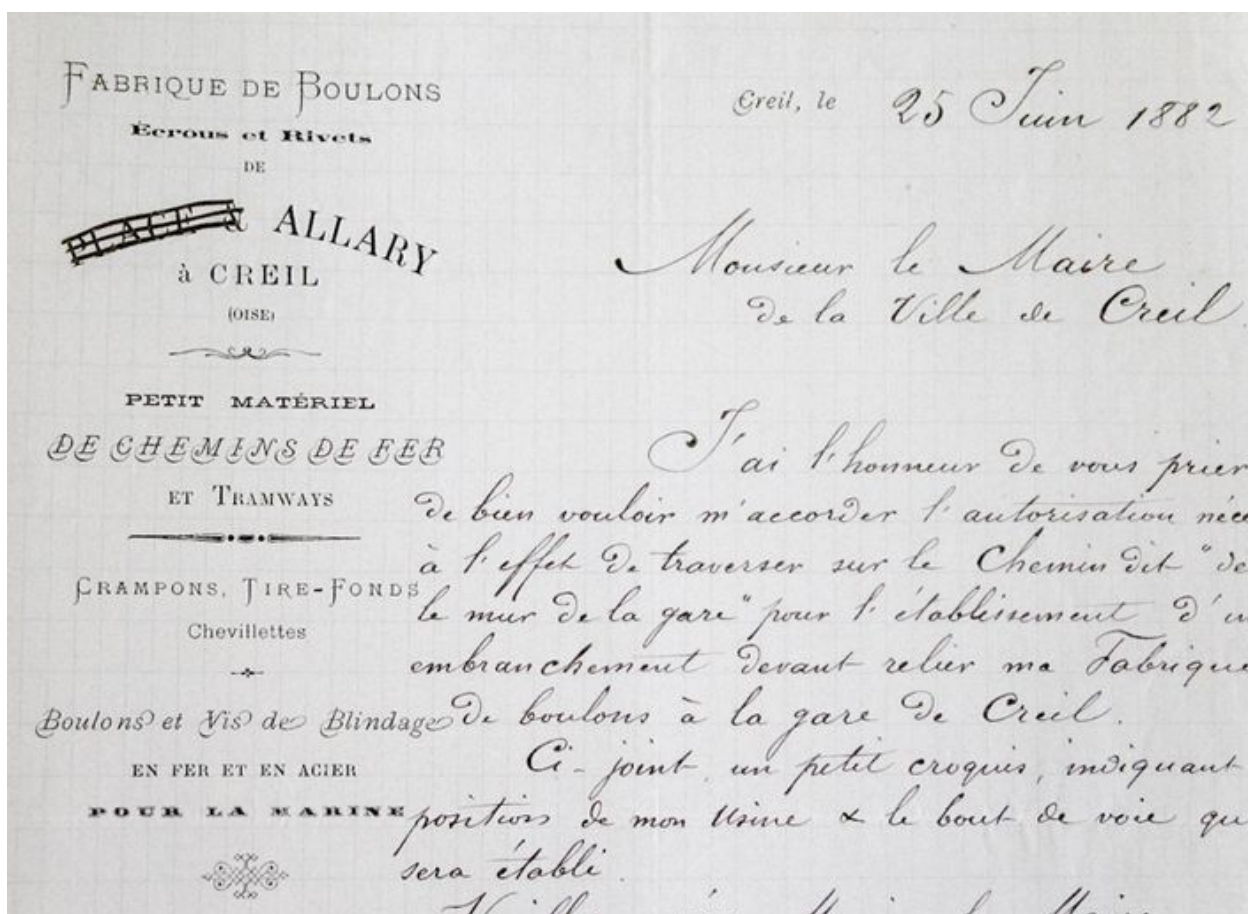 FABRIQUE DE BOULONS
Écrous et Rivets
DE
PLACE & ALLARY
à CREIL
(OISE)
PETIT MATÉRIEL
DE CHEMINS DE FER
ET TRAMWAYS
CRAMPONS, TIRE-FONDS
Chevillettes
Boulons et Vis de Blindage
EN FER ET EN ACIER
POUR LA MARINE
Creil, le 25 Juin 1882
Monsieur le Maire
de la Ville de Creil.
J'ai l'honneur de vous prier
de bien vouloir m'accorder l'autorisation néce
à l'effet de traverser sur le Chemin dit "de
le mur de la gare" pour l'établissement d'u
embranchement devant relier ma Fabrique
de boulons à la gare de Creil.
Ci-joint, un petit croquis, indiquant
position de mon Usine & le bout de voie qu
sera établi.